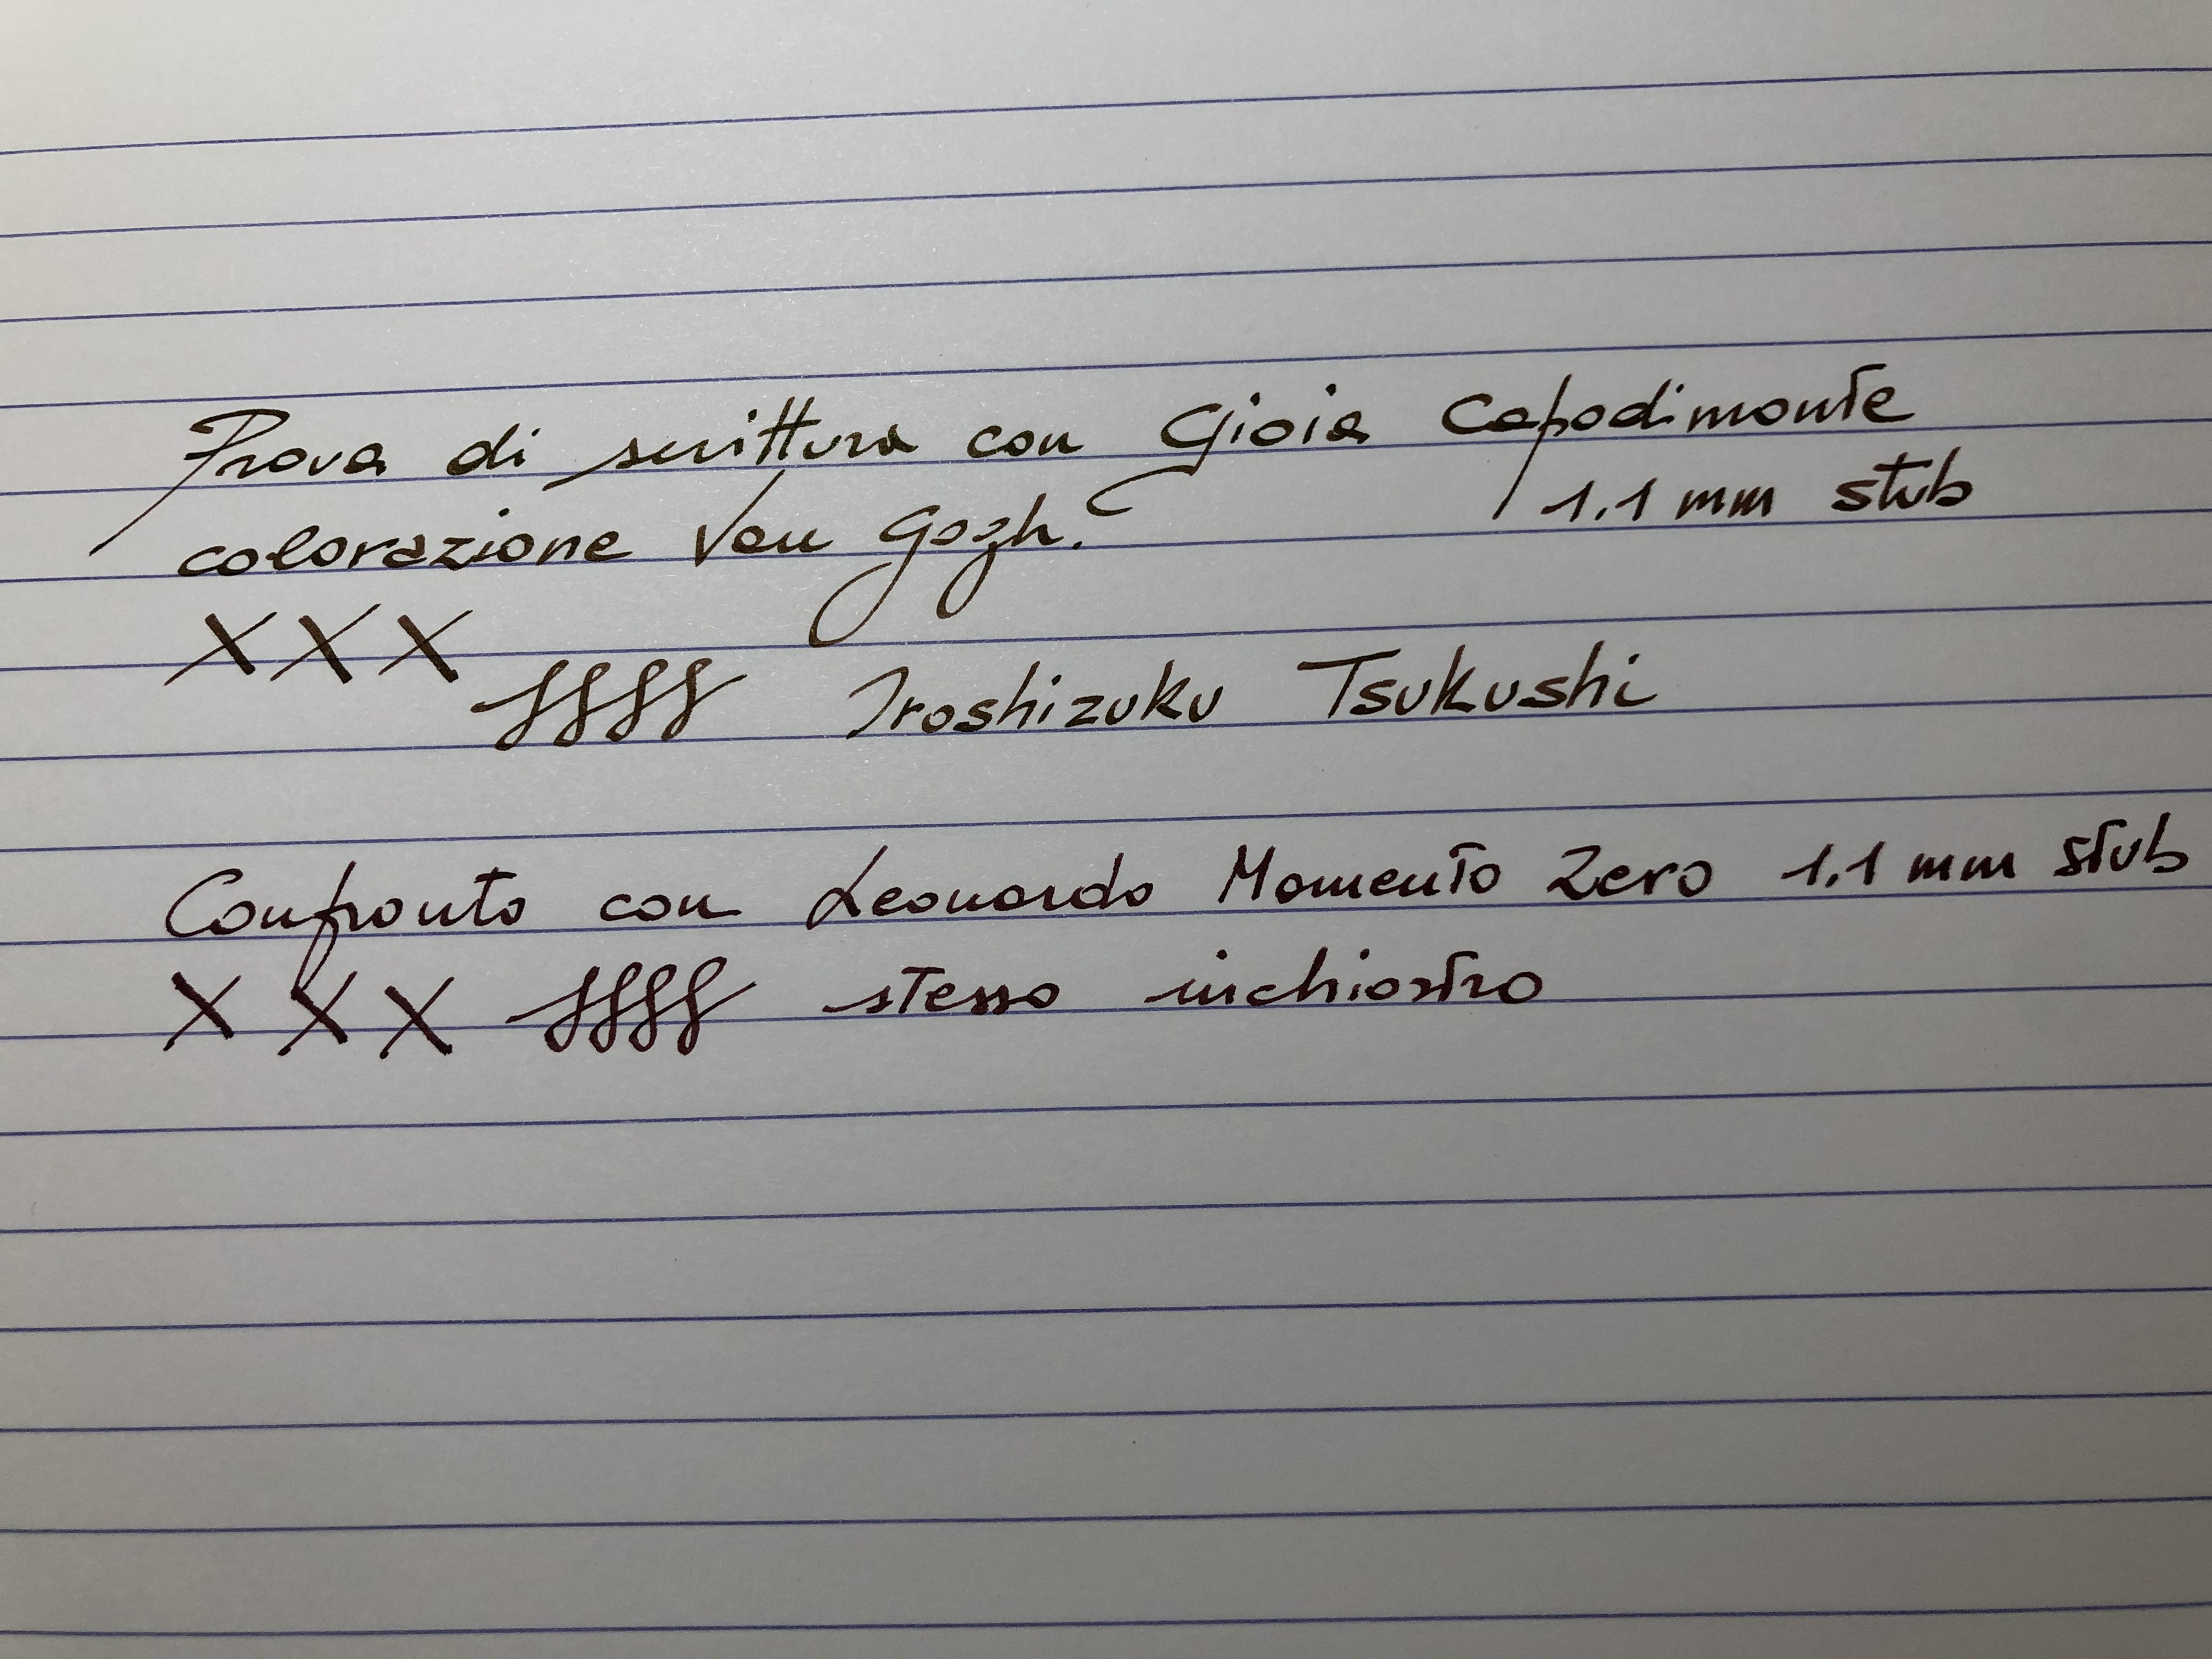 Prova di scrittura con Gioia Capodimonte
colorazione Van Gogh. 1.1 mm stub
XXX Iroshizuku Tsukushi
Confronto con Leonardo Momento Zero 1.1 mm stub
X X X stesso inchiostro